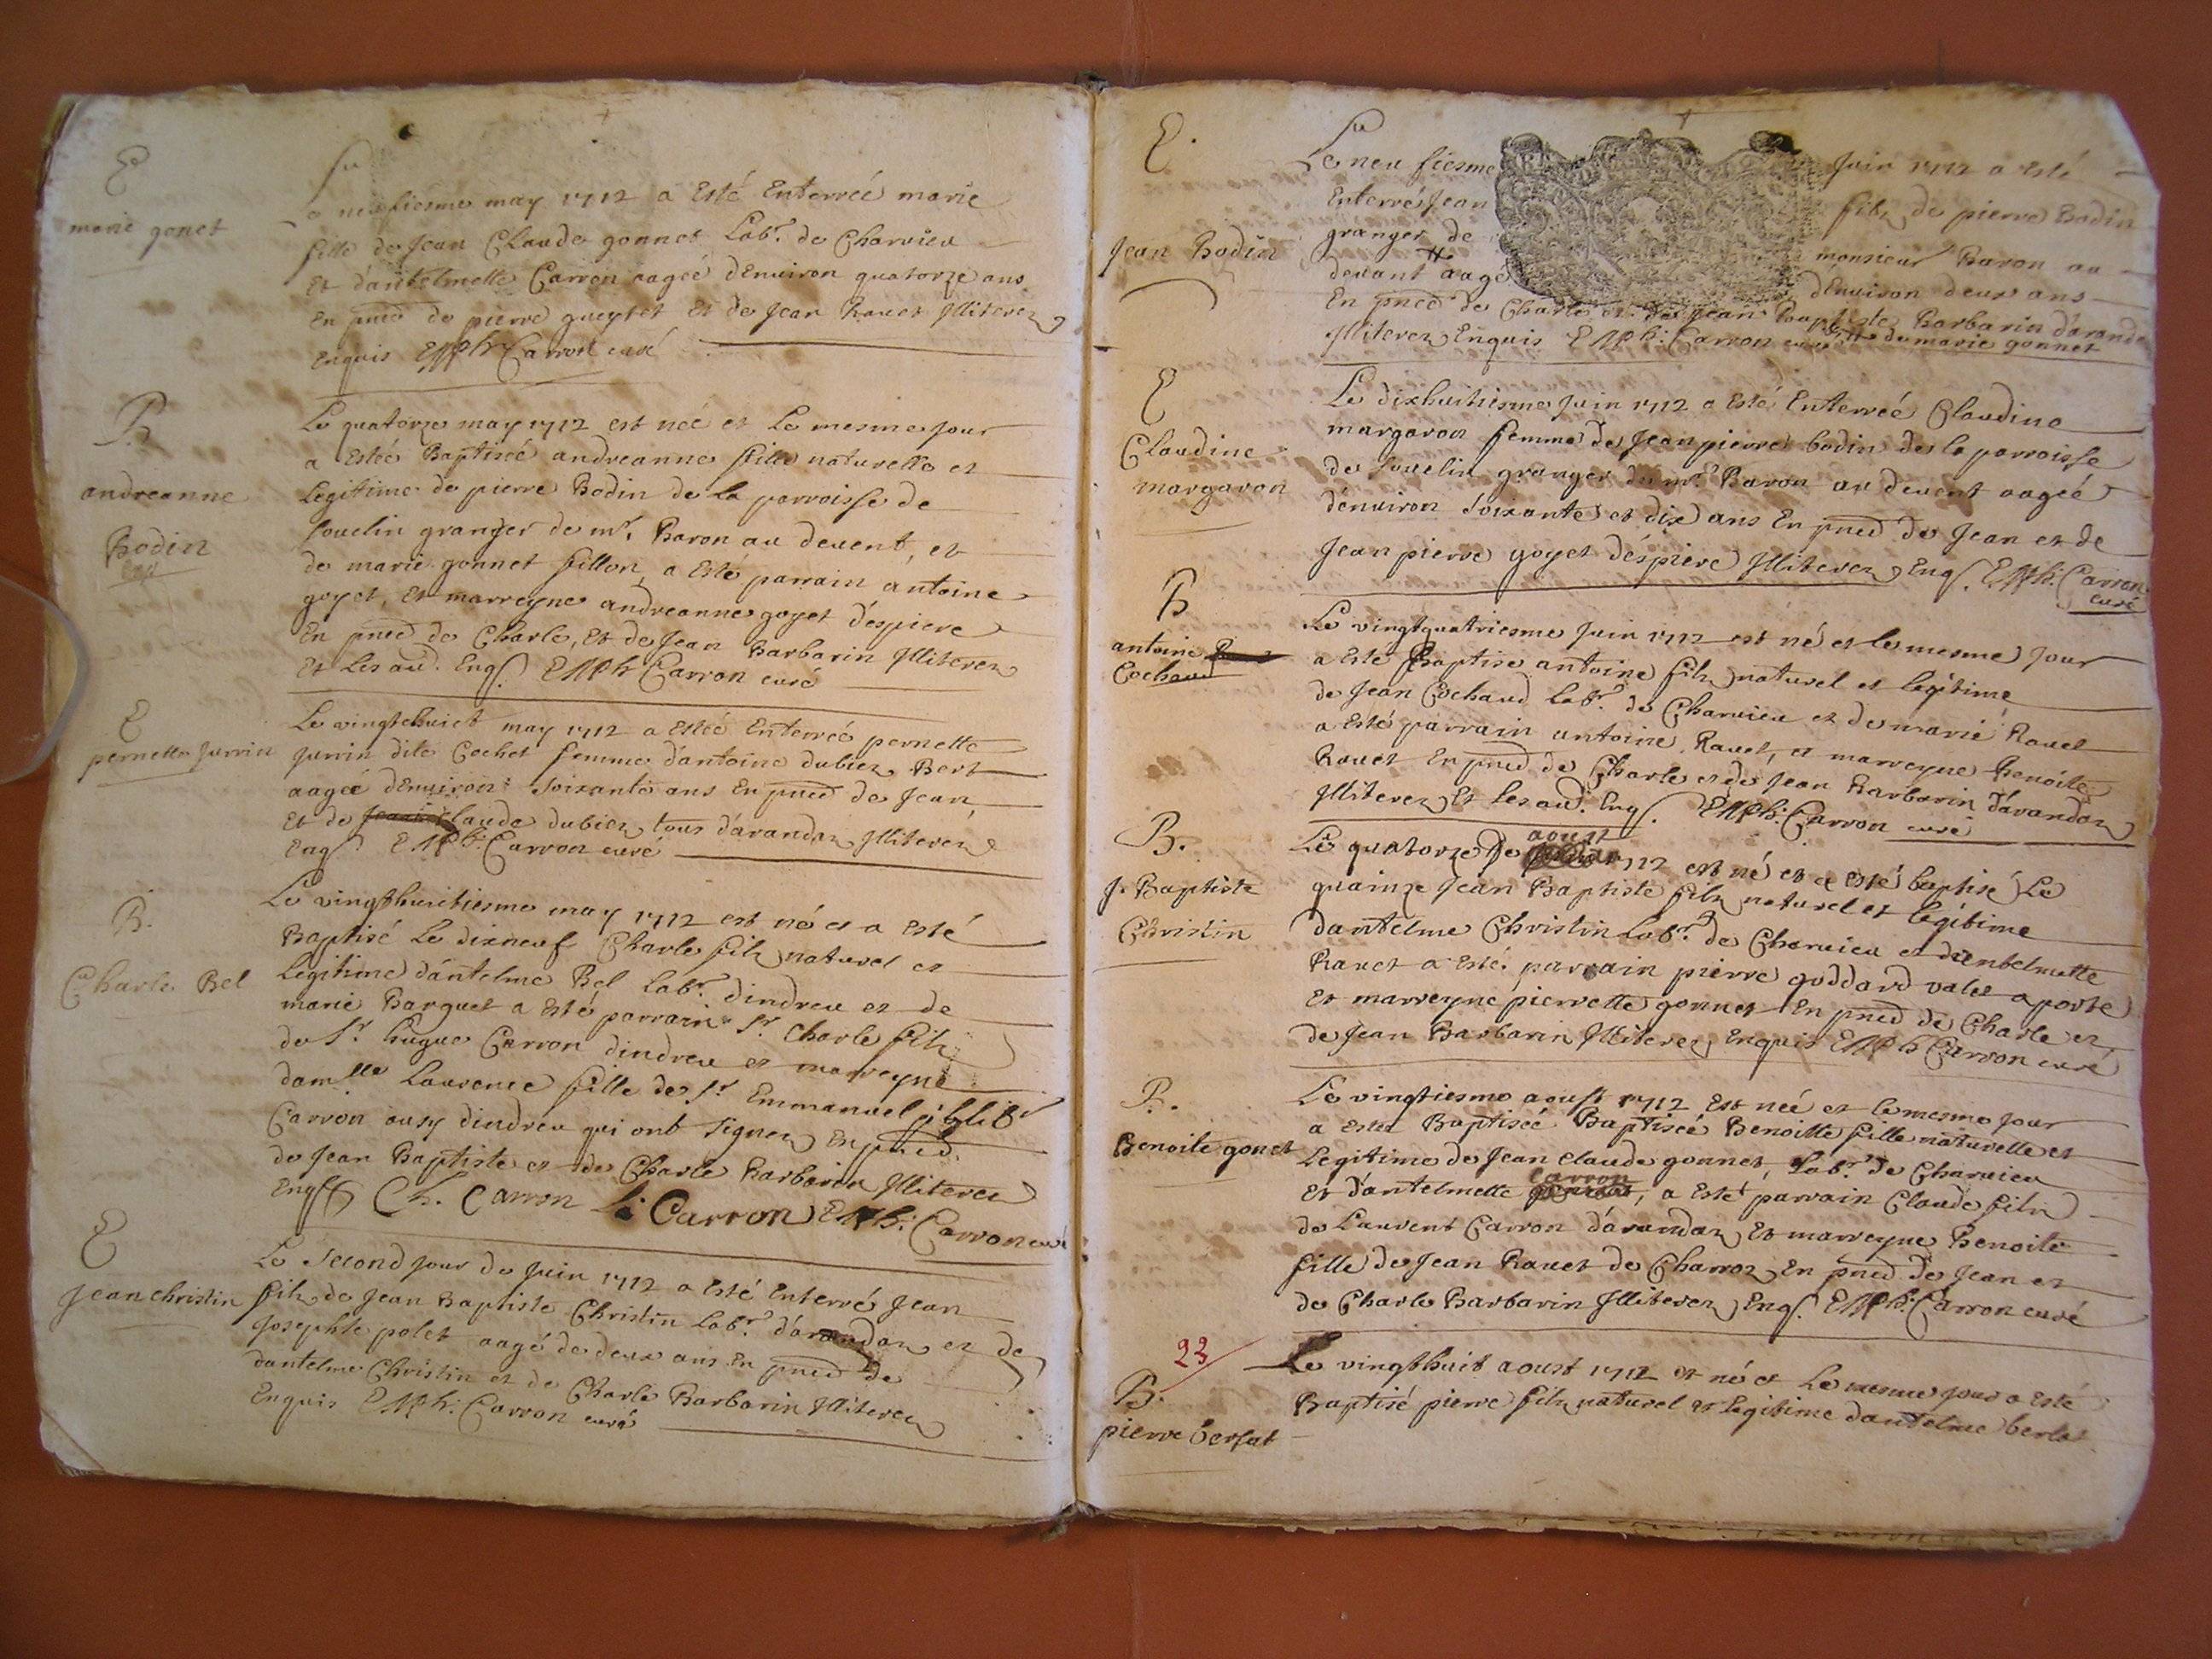 E
marie gonet
Le neufiesme may 1712 a Esté Enterréé marie
fille de Jean Claude gonnet Labr. de Charvieu
Et d'antelmette Carron aagéé d'Enuiron quatorze ans
En pnce de pierre gueytet et de Jean Rauet Jlliterez
Enquis Carron curé
B
andreanne
Bodin
Le quatorze may 1712 est néé et Le mesme jour
a Estéé Baptiséé andreanne fille naturelle et
Legitime de pierre Bodin de La parroisse de
Souclin granger de mr. Baron au deuent, et
de marie gonnet fillon, a Esté parrain antoine
goyet, Et marreyne andreanne goyet d'espiere
En pnce de Charle, Et de Jean Barbarin Jlliterez
Et Les aud. Enqs. Carron curé
E
pernette Jurrin
Le vingthuict may 1712 a Estéé Enterréé pernette
Jurrin dite Cochet femme d'antoine dubiez Bert
aagéé d'Enuiron soixante ans En pnce de Jean
Et de Claude dubiez tous d'arandaz Jlliterez
Enqs. Carron curé
B.
Charle Bel
Le vingthuitiesme may 1712 est né et a Esté
Baptisé Le dixneuf Charle filz naturel et
Legitime d'antelme Bel Labr. dindreu et de
marie Barquet a Esté parrain Sr. Charle filz
de Sr. hugue Carron dindreu et marreyne
damlle Laurence fille de Sr. Emmanuel philibr
Carron ausy dindreu qui ont signez En pnce
de Jean Baptiste et de Charle Barbarin Jlliterez
Enqs Ch. Carron L. Carron Carron curé
E
Jean christin
Le second jour de Juin 1712 a Esté Enterré Jean
filz de Jean Baptiste Christin Labr. d'arandaz et de
Josephte polet aagé de deux ans En pnce de
dantelme Christin et de Charle Barbarin Jlliterez
Enquis Carron curé
E.
Jean Bodin
Le neufiesme Juin 1712 a Esté
Enterré Jean filz de pierre Bodin
granger de monsieur Baron au
deuant aagé d'Enuiron deux ans
En pnce de Charle et de Jean baptiste Barbarin d'arandaz
Jlliterez Enquis Carron curé de marie gonnet
E
Claudine
margaron
Le dixhuitiesme Juin 1712 a Esté Enterréé Claudine
margaron femme de Jean pierre bodin de la parroisse
de Souclin granger de mr. Baron au deuent aagéé
d'enuiron soixante et dix ans En pnce de Jean et de
Jean pierre goyet d'espiere Jlliterez Enqs. Carron
curé
B
antoine
Cochaud
Le vingtquatriesme Juin 1712 est né et le mesme jour
a Esté Baptise antoine filz naturel et legitime
de Jean Cochaud Labr. de Charvieu et de marie Rauet
a Esté parrain antoine Rauet, et marreyne Benoite
Rauet En pnce de Charle et de Jean Barbarin d'arandaz
Jlliterez Et les aud. Enqs. Carron curé
B.
J. Baptiste
Christin
aoust
Le quatorze de 1712 est né et a esté baptisé Le
quainze Jean Baptiste filz naturel et legitime
dantelme Christin Labr. de Charvieu et d'antelmette
Rauet a Esté parrain pierre goddard valet a porte
Et marreyne pierrette gonnet En pnce de Charle et
de Jean Barbarin Jlliterez Enquis Carron curé
B.
Benoite gonet
Le vingtiesme aoust 1712 Est néé et le mesme jour
a Esté Baptiséé Baptiséé Benoitte fille naturelle et
Legitime de Jean Claude gonnet, Labr. de Charvieu
Carron
Et d'antelmette, a Esté parrain Claude filz
de Laurent Carron d'arandaz Et marreyne Benoite
fille de Jean Rauet de Charroz En pnce de Jean et
de Charle Barbarin Jlliterez Enqs. Carron curé
23
B.
pierre berlat
Le vingthuit aoust 1712 est né et Le mesme jour a esté
Baptisé pierre filz naturel et legitime dantelme berlat